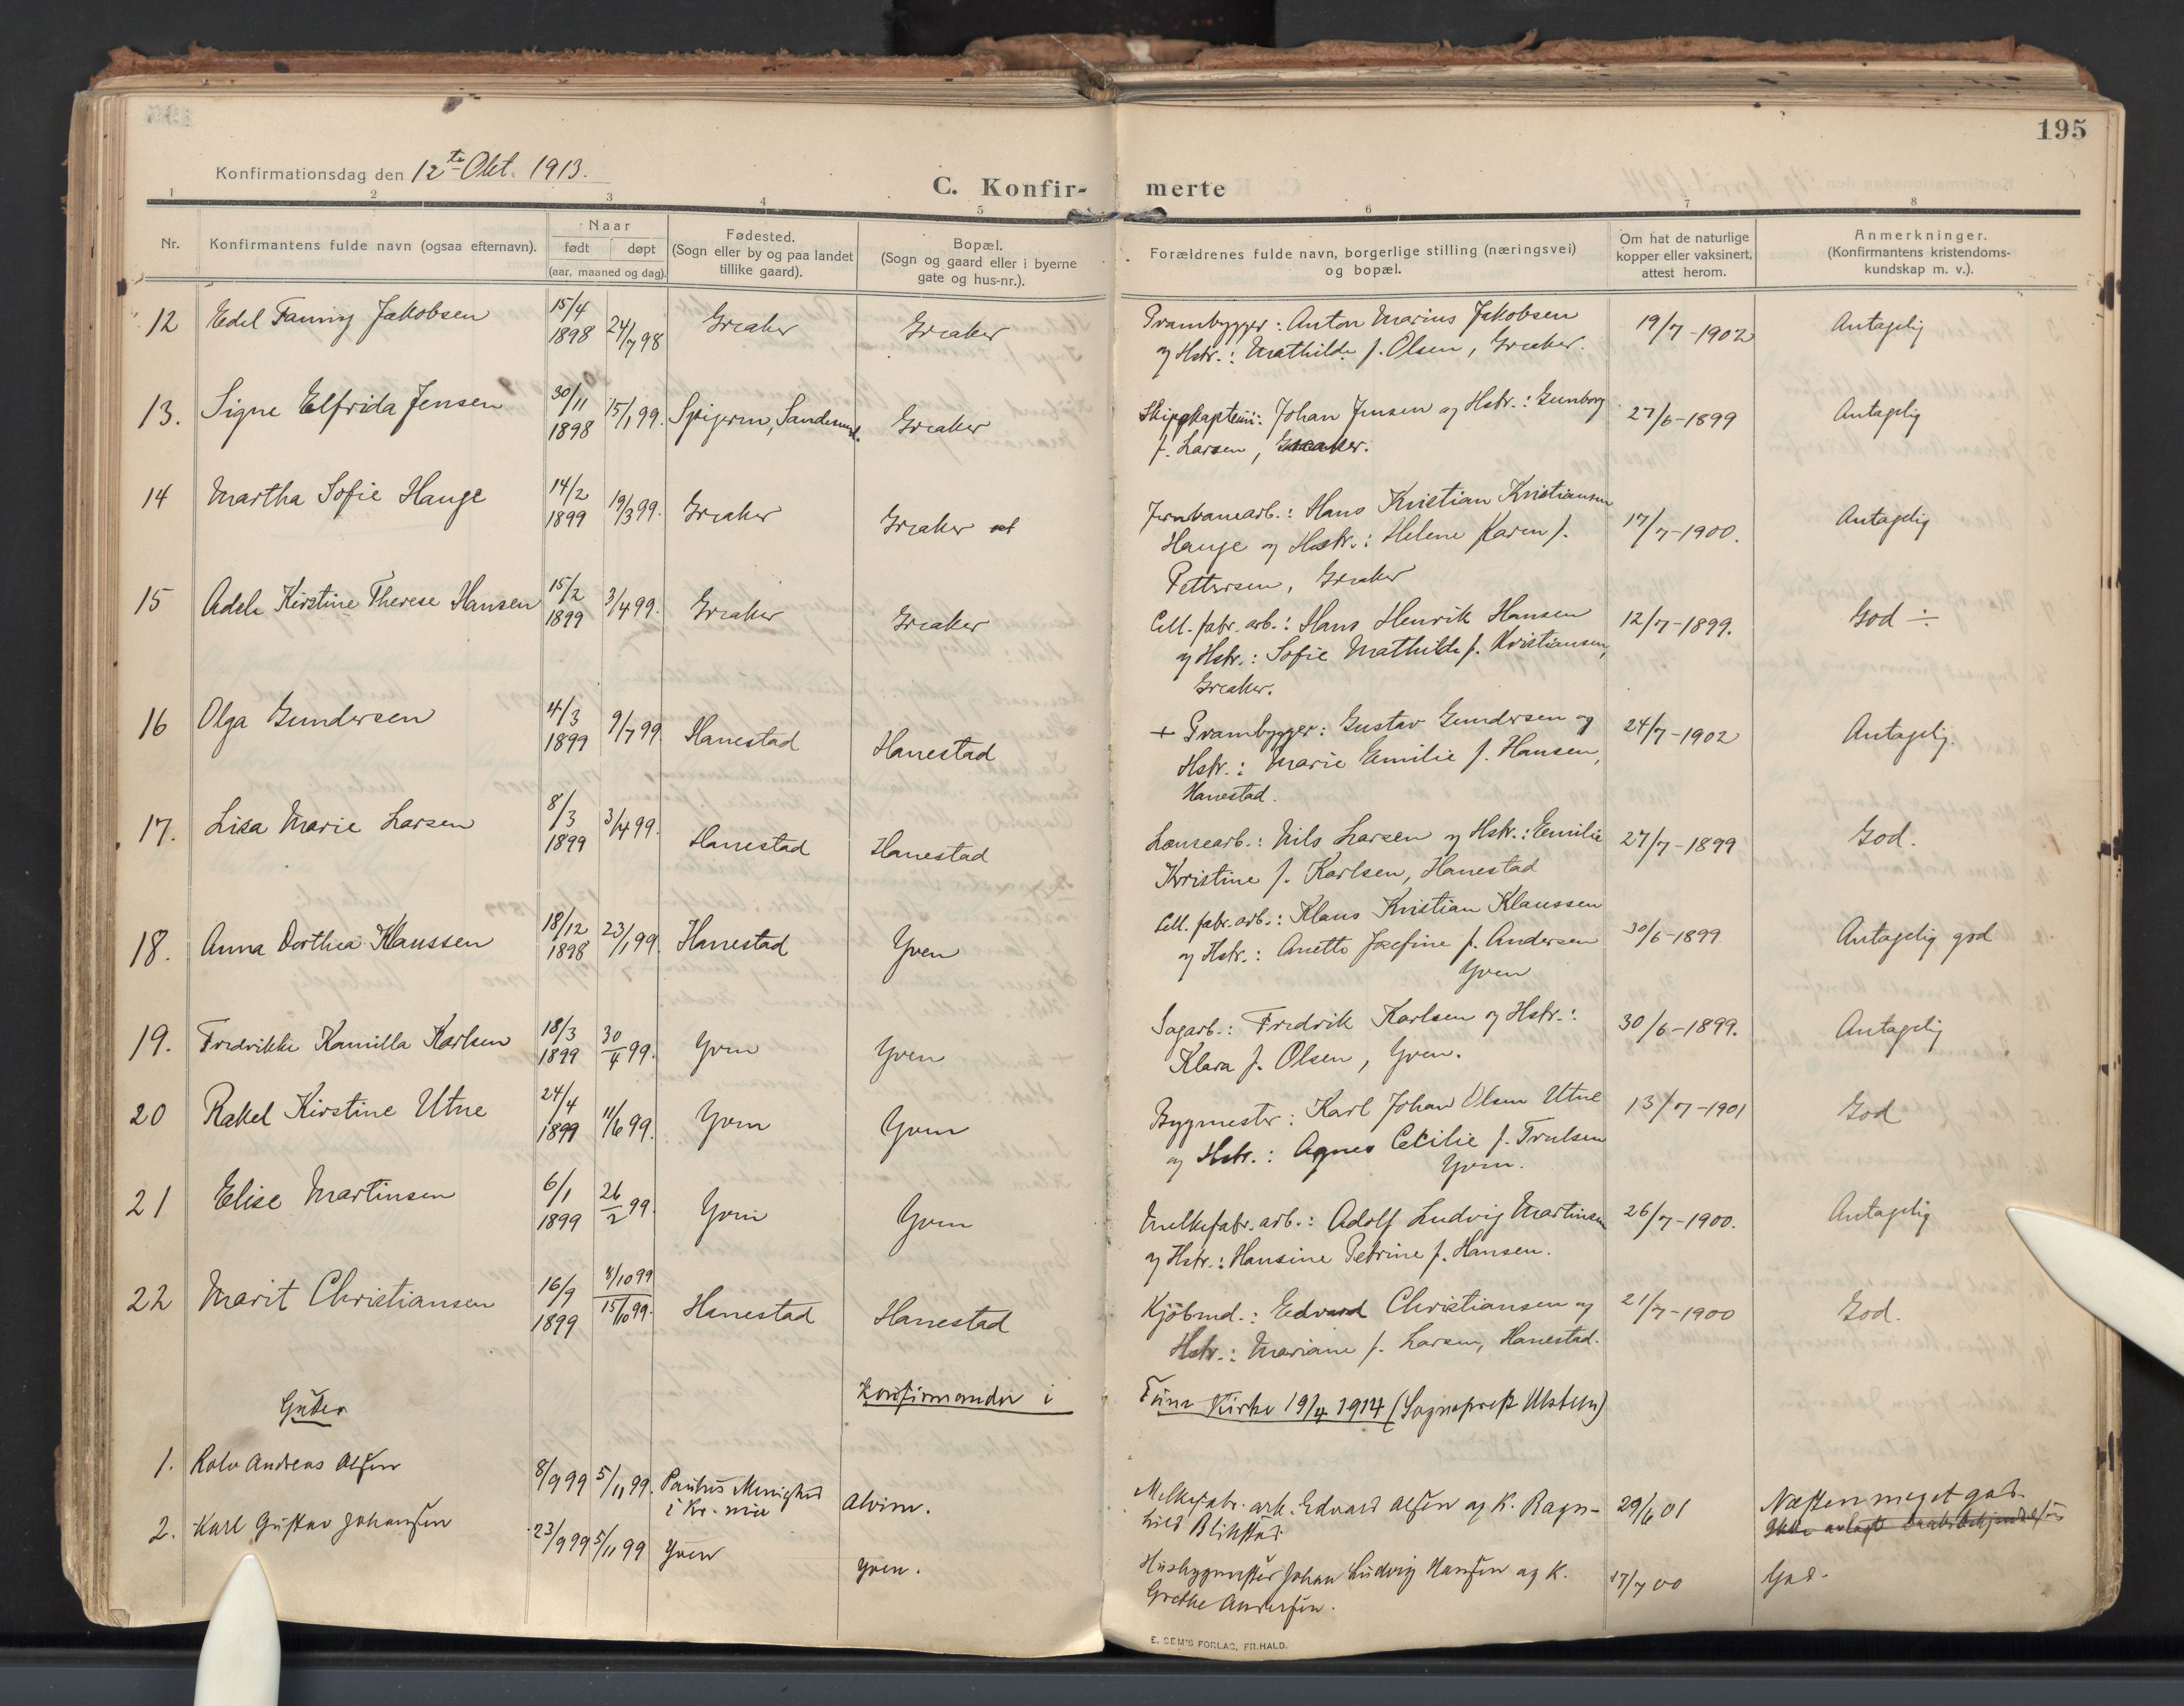 195
Konfirmationsdag den 12te Okt. 1913.
C. Konfir- merte
1 2 3 4 5 6 7 8
Nr.
Konfirmantens fulde navn (ogsaa efternavn).
Naar
født døpt
(aar, maaned og dag).
Fødested.
(Sogn eller by og paa landet
tillike gaard).
Bopæl.
(Sogn og gaard eller i byerne
gate og hus-nr.).
Forældrenes fulde navn, borgerlige stilling (næringsvei)
og bopæl.
Om hat de naturlige
kopper eller vaksinert,
attest herom.
Anmerkninger.
(Konfirmantens kristendoms-
kundskap m. v.).
12 Edel Fanny Jakobsen 15/4 1898 24/7 98 Greaker Greaker
Prambygger: Anton Marius Jakobsen
og Hstr.: Mathilde f. Olsen, Greaker.
19/7-1902 Antagelig
13. Signe Elfrida Jensen 30/11 1898 15/1 99. Spijerm, Sandesund. Greaker
Skipskaptein: Johan Jensen og Hstr.: Gunborg
f. Larsen, Greaker.
27/6-1899 Antagelig
14 Martha Sofie Hauge 14/2 1899 19/3 99. Greaker Greaker
Jernbanearb.: Hans Kristian Kristiansen
Hauge og Hstr.: Helene Karen f.
Pettersen, Greaker
17/7-1900. Antagelig
15 Adele Kirstine Therese Hansen 15/2 1899 3/4 99. Greaker Greaker
Cell. fabr. arb.: Hans Henrik Hansen
og Hstr.: Sofie Mathilde f. Kristiansen,
Greaker.
12/7-1899. God ÷
16 Olga Gundersen 4/3 1899 9/7 99 Hanestad Hanestad
+ Prambygger: Gustav Gundersen og
Hstr.: Marie Emilie f. Hansen,
Hanestad.
24/7-1902 Antagelig.
17. Lisa Marie Larsen 8/3 1899 3/4 99. Hanestad Hanestad
Lænsearb.: Nils Larsen og Hstr.: Emilie
Kristine f. Karlsen, Hanestad
27/7-1899 God.
18. Anna Dorthea Klaussen 18/12 1898 23/1 99. Hanestad Yven
Cell. fabr. arb.: Klaus Kristian Klaussen
og Hstr.: Anette Josefine f. Andersen
Yven
30/6-1899 Antagelig god
19. Fredrikke Kamilla Karlsen 18/3 1899 30/4 99. Yven Yven
Sagarb.: Fredrik Karlsen og Hstr.:
Klara f. Olsen, Yven.
30/6-1899. Antagelig
20 Rakel Kirstine Utne 24/4 1899 11/6 99. Yven Yven
Bygmester: Karl Johan Olsen Utne
og Hstr.: Agnes Cecilie f. Trulsen
Yven.
13/7-1901 God
21 Elise Martinsen 6/1 1899 26/2 99. Yven Yven
Melkefabr. arb.: Adolf Ludvig Martinsen
og Hstr.: Hansine Petrine f. Hansen.
26/7-1900. Antagelig
22 Marit Christiansen 16/9 1899 8/10 99 15/10 99. Hanestad Hanestad
Kjøbmd.: Edvard Christiansen og
Hstr.: Mariane f. Larsen, Hanestad.
21/7-1900 God.
Gutter
Konfirmander i Tune Kirke 19/4 1914 (Sogneprest Ulstein)
1. Rolv Andreas Olsen 8/9 99 5/11 99. Paulus Menighed
i Kr.nia Alvim.
Melkefabr. arb. Edvard Olsen og K. Ragn-
hild Blikstad
29/6 01 Næsten meget god.
2. Karl Gustav Johansen 23/9 99 5/11 99 Yven Yven.
Husbygmester Johan Ludvig Hansen og K.
Grethe Andersen.
17/7 00 God.
E. SEM'S FORLAG, FR.HALD.